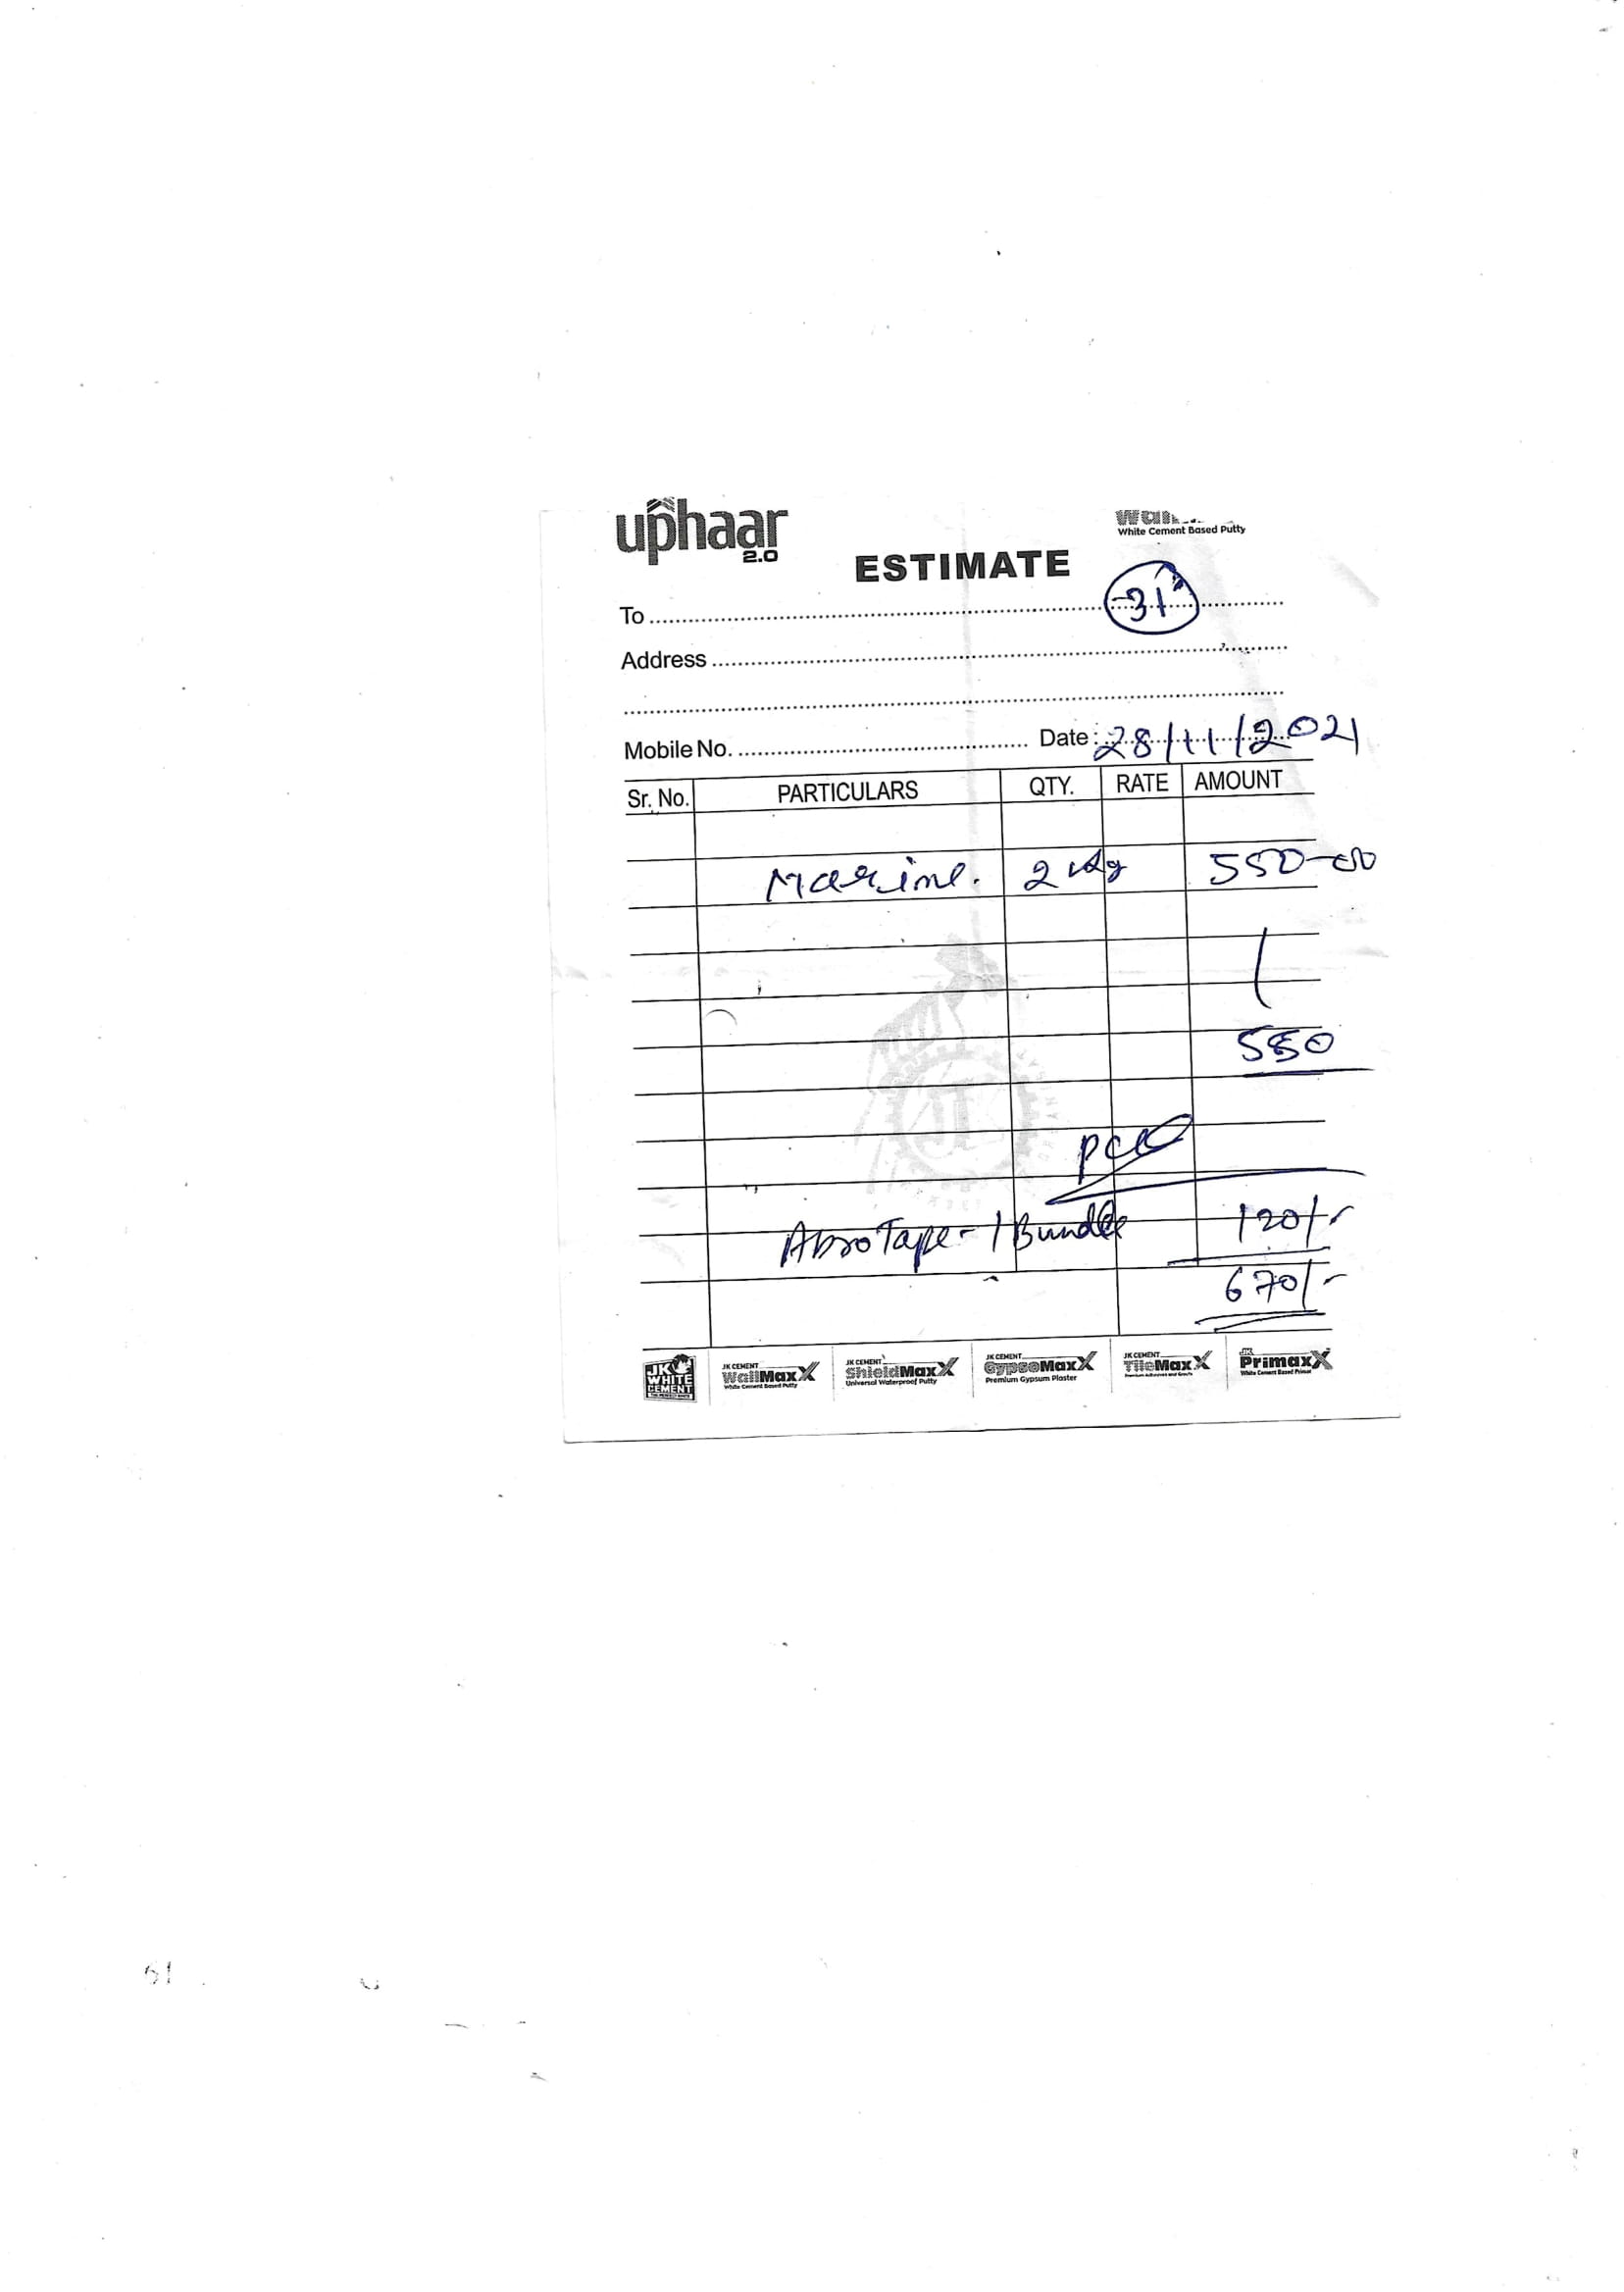 uphaar
2.0
White Cement Based Putty
ESTIMATE
31
To
Address
Mobile No. Date : 28/11/2021
Sr. No. PARTICULARS QTY. RATE AMOUNT
Marine. 2 kg 550-00
550
Abro Tape - 1 Bundle 120/-
670/-
JK WHITE CEMENT
JK CEMENT WallMaxX White Cement Based Putty
JK CEMENT ShieldMaxX Universal Waterproof Putty
JK CEMENT GypsoMaxX Premium Gypsum Plaster
JK CEMENT TileMaxX
JK PrimaxX White Cement Based Primer